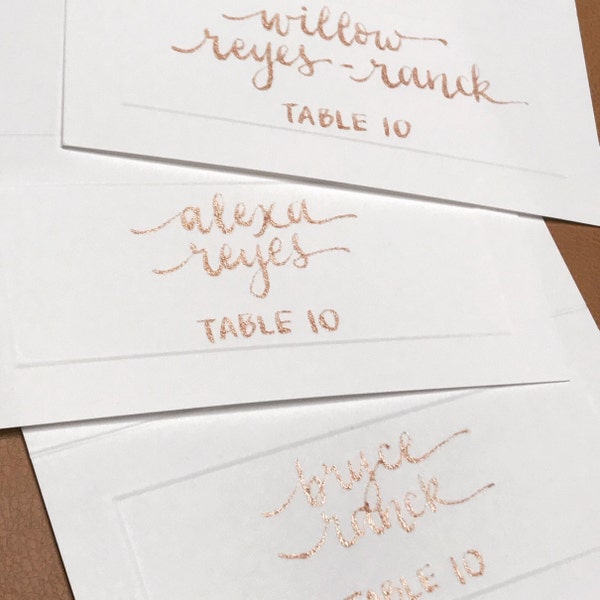 willow
reyes-ranck
TABLE 10
alexa
reyes
TABLE 10
bryce
ranck
TABLE 10